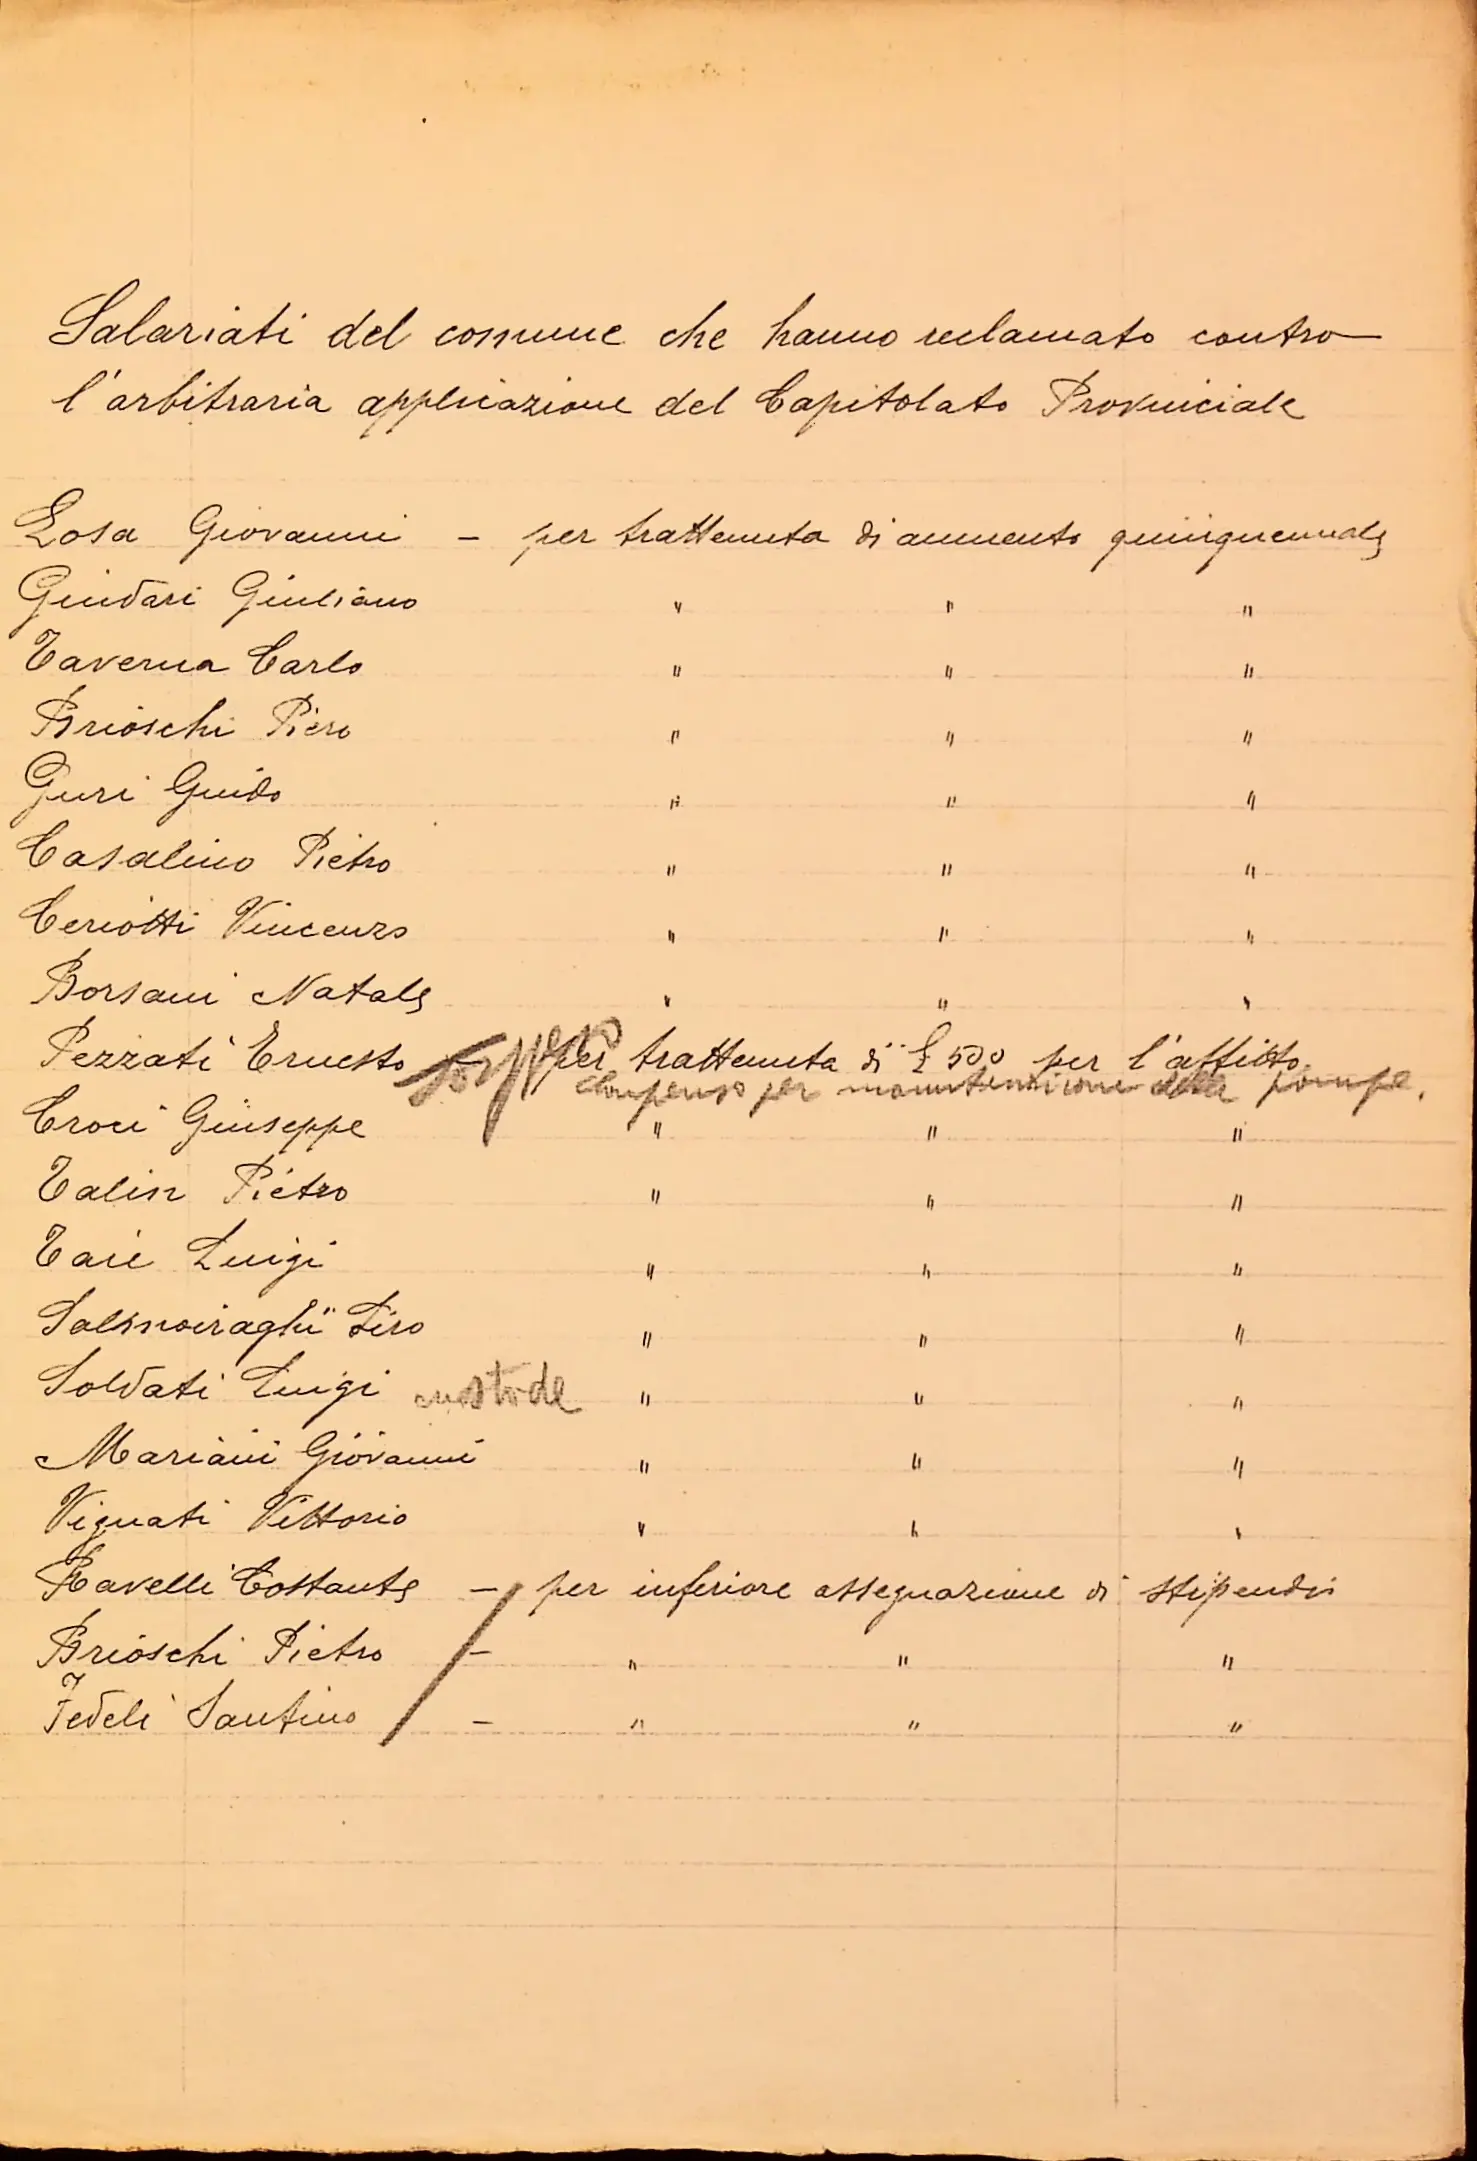 Salariati del comune che hanno reclamato contro
l'arbitraria applicazione del Capitolato Provinciale
Losa Giovanni - per trattenuta di aumento quinquennale
Giudari Giuliano " " "
Taverna Carlo " " "
Brioschi Piero " " "
Guri Guido " " "
Casalino Pietro " " "
Ceriotti Vincenzo " " "
Borsani Natale " " "
Pezzati Ernesto per trattenuta di £ 500 per l'affitto
Compenso per manutenzione della pompe.
Croci Giuseppe " " "
Talin Pietro " " "
Luigi " " "
Salmoiraghi Siro " " "
Soldati Luigi custode " " "
Mariani Giovanni " " "
Vignati Vittorio " " "
Ravelli Costante - per inferiore assegnazione di stipendio
Brioschi Pietro - " " "
Fedeli Santino - " " "